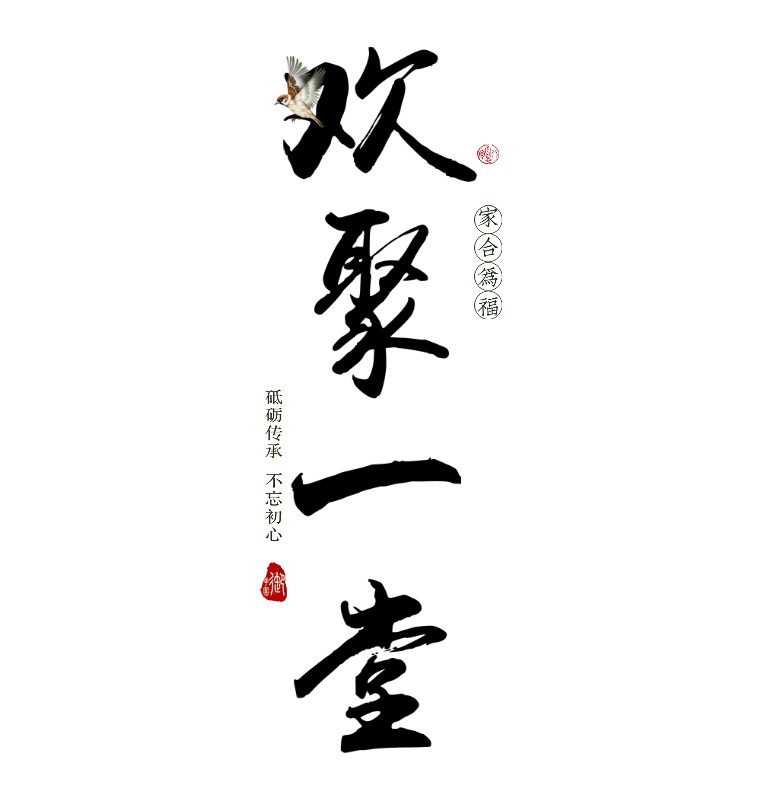 欢聚一堂
家合為福
砥砺传承 不忘初心
御